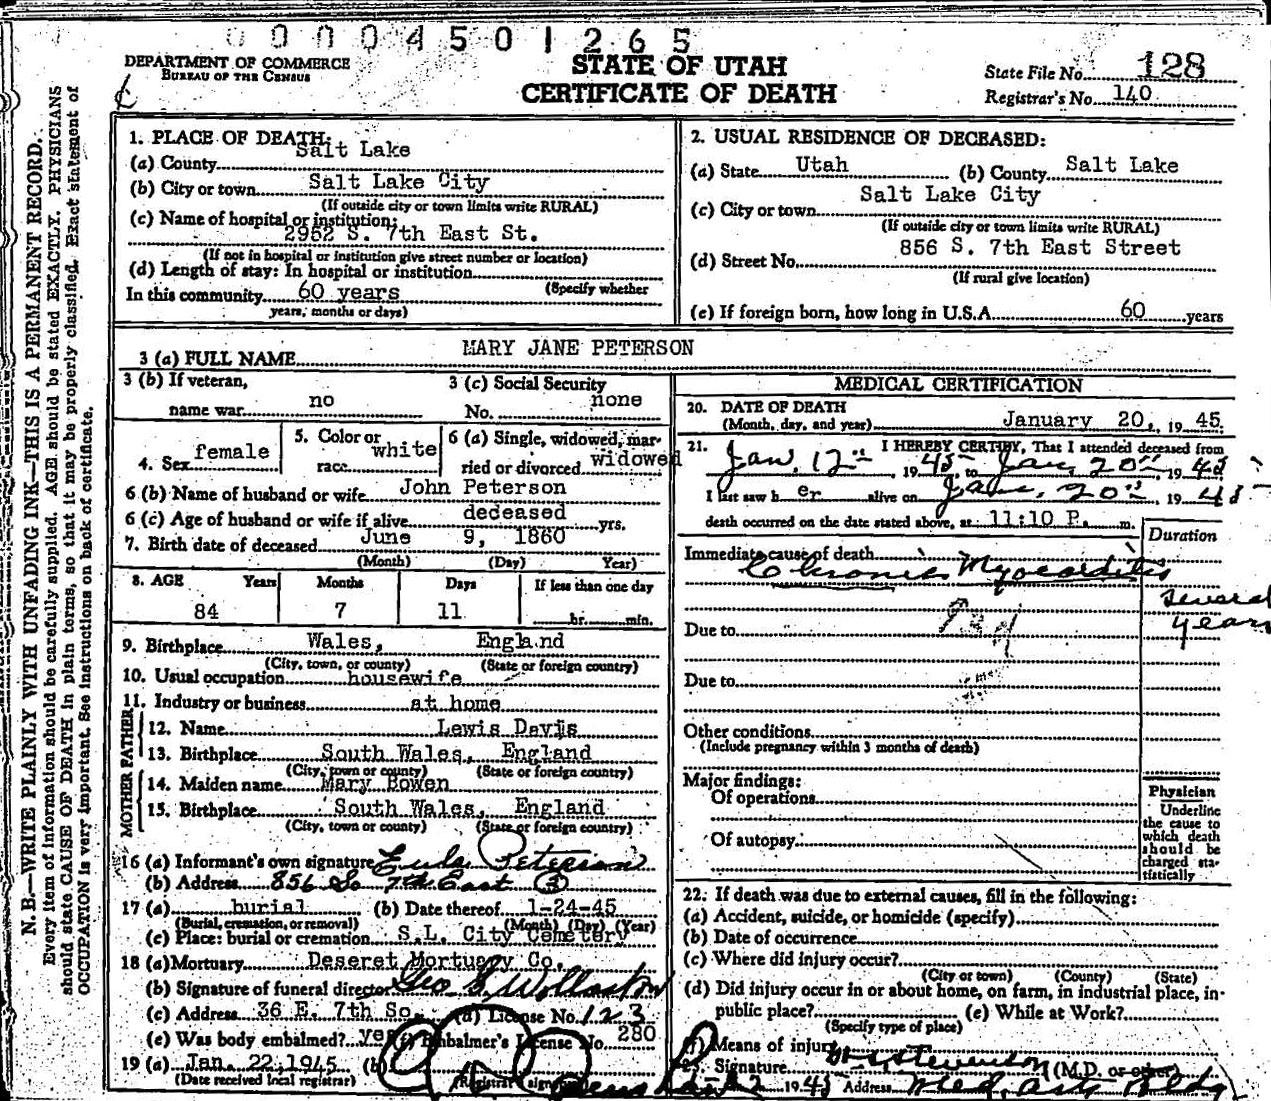 00004501265
DEPARTMENT OF COMMERCE
BUREAU OF THE CENSUS
STATE OF UTAH
CERTIFICATE OF DEATH
State File No. 128
Registrar's No. 140
N. B.—WRITE PLAINLY WITH UNFADING INK—THIS IS A PERMANENT RECORD.
Every item of information should be carefully supplied. AGE should be stated EXACTLY. PHYSICIANS
should state CAUSE OF DEATH in plain terms, so that it may be properly classified. Exact statement of
OCCUPATION is very important. See instructions on back of certificate.
1. PLACE OF DEATH:
(a) County Salt Lake
(b) City or town Salt Lake City
(If outside city or town limits write RURAL)
(c) Name of hospital or institution:
2952 S. 7th East St.
(If not in hospital or institution give street number or location)
(d) Length of stay: In hospital or institution
(Specify whether
In this community 60 years
years, months or days)
2. USUAL RESIDENCE OF DECEASED:
(a) State Utah (b) County Salt Lake
(c) City or town Salt Lake City
(If outside city or town limits write RURAL)
(d) Street No. 856 S. 7th East Street
(If rural give location)
(e) If foreign born, how long in U.S.A. 60 years
3 (a) FULL NAME MARY JANE PETERSON
3 (b) If veteran, name war no
3 (c) Social Security No. none
4. Sex female
5. Color or race white
6 (a) Single, widowed, married or divorced widowed
6 (b) Name of husband or wife John Peterson
6 (c) Age of husband or wife if alive deceased yrs.
7. Birth date of deceased June 9, 1860
(Month) (Day) Year)
8. AGE Years Months Days If less than one day
84 7 11 hr. min.
9. Birthplace Wales, England
(City, town, or county) (State or foreign country)
10. Usual occupation housewife
11. Industry or business at home
FATHER
12. Name Lewis Davis
13. Birthplace South Wales, England
(City, town or county) (State or foreign country)
MOTHER
14. Maiden name Mary Bowen
15. Birthplace South Wales, England
(City, town or county) (State or foreign country)
16 (a) Informant's own signature Peterson
(b) Address 856 So 7th East
17 (a) burial (b) Date thereof 1-24-45
(Burial, cremation, or removal) (Month) (Day) (Year)
(c) Place: burial or cremation S.L. City Cemetery
18 (a) Mortuary Deseret Mortuary Co.
(b) Signature of funeral director Geo S. Wollaston
(c) Address 36 E. 7th So. (d) License No. 123
(e) Was body embalmed? yes (f) Embalmer's License No. 280
19 (a) Jan. 22, 1945 (b)
(Date received local registrar) (Registrar's signature)
MEDICAL CERTIFICATION
20. DATE OF DEATH
(Month, day, and year) January 20, 1945
21. I HEREBY CERTIFY, That I attended deceased from
Jan. 12th, 1945, to Jan. 20th 1945
I last saw her alive on Jan. 20th, 1945
death occurred on the date stated above, at 11:10 P. m.
Duration
Immediate cause of death
Chronic Myocarditis
several
years
Due to
Due to
Other conditions
(Include pregnancy within 3 months of death)
Major findings:
Of operations
Of autopsy
Physician
Underline
the cause to
which death
should be
charged sta-
tistically
22. If death was due to external causes, fill in the following:
(a) Accident, suicide, or homicide (specify)
(b) Date of occurrence
(c) Where did injury occur?
(City or town) (County) (State)
(d) Did injury occur in or about home, on farm, in industrial place, in
public place? (e) While at Work?
(Specify type of place)
(f) Means of injury
23. Signature Stevenson (M.D. or other)
1945 Address Med. Arts Bldg